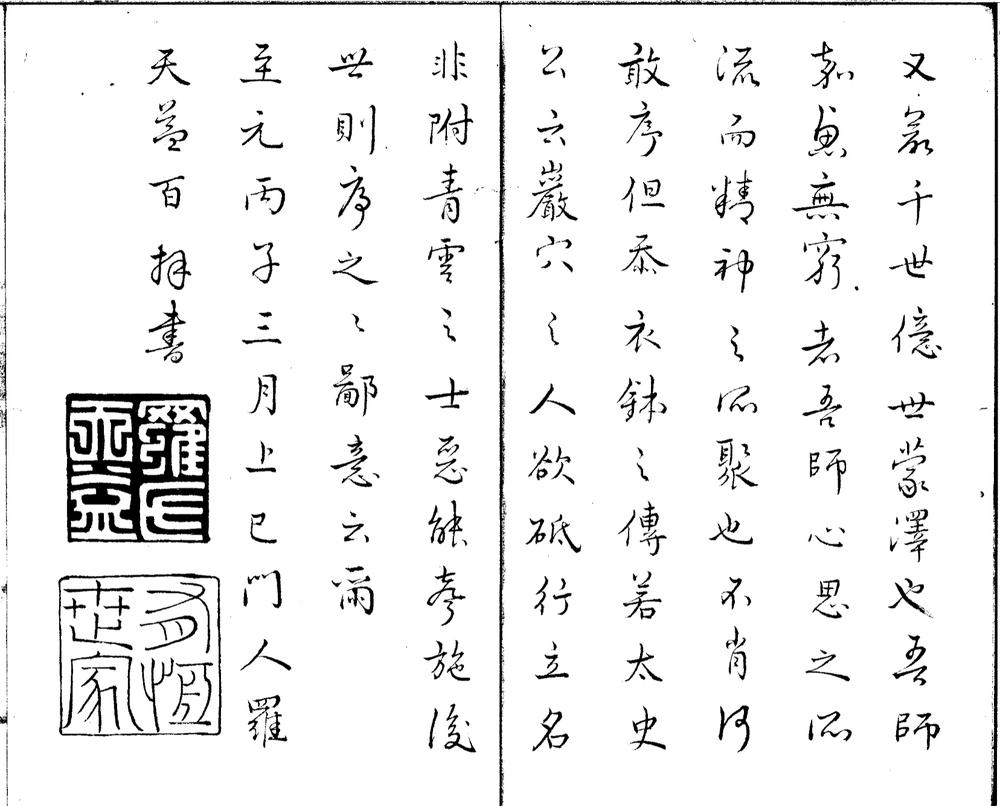 又千世億世蒙澤也吾師
嘉惠無窮者吾師心思之所
流而精神之所聚也不肖何
敢序但忝衣鉢之傳若太史
公云巖穴之人欲砥行立名
非附青雲之士惡能施後
世則序之之鄙意云爾
至元丙子三月上巳門人羅
天益百拜書
羅氏天益
有恒世家